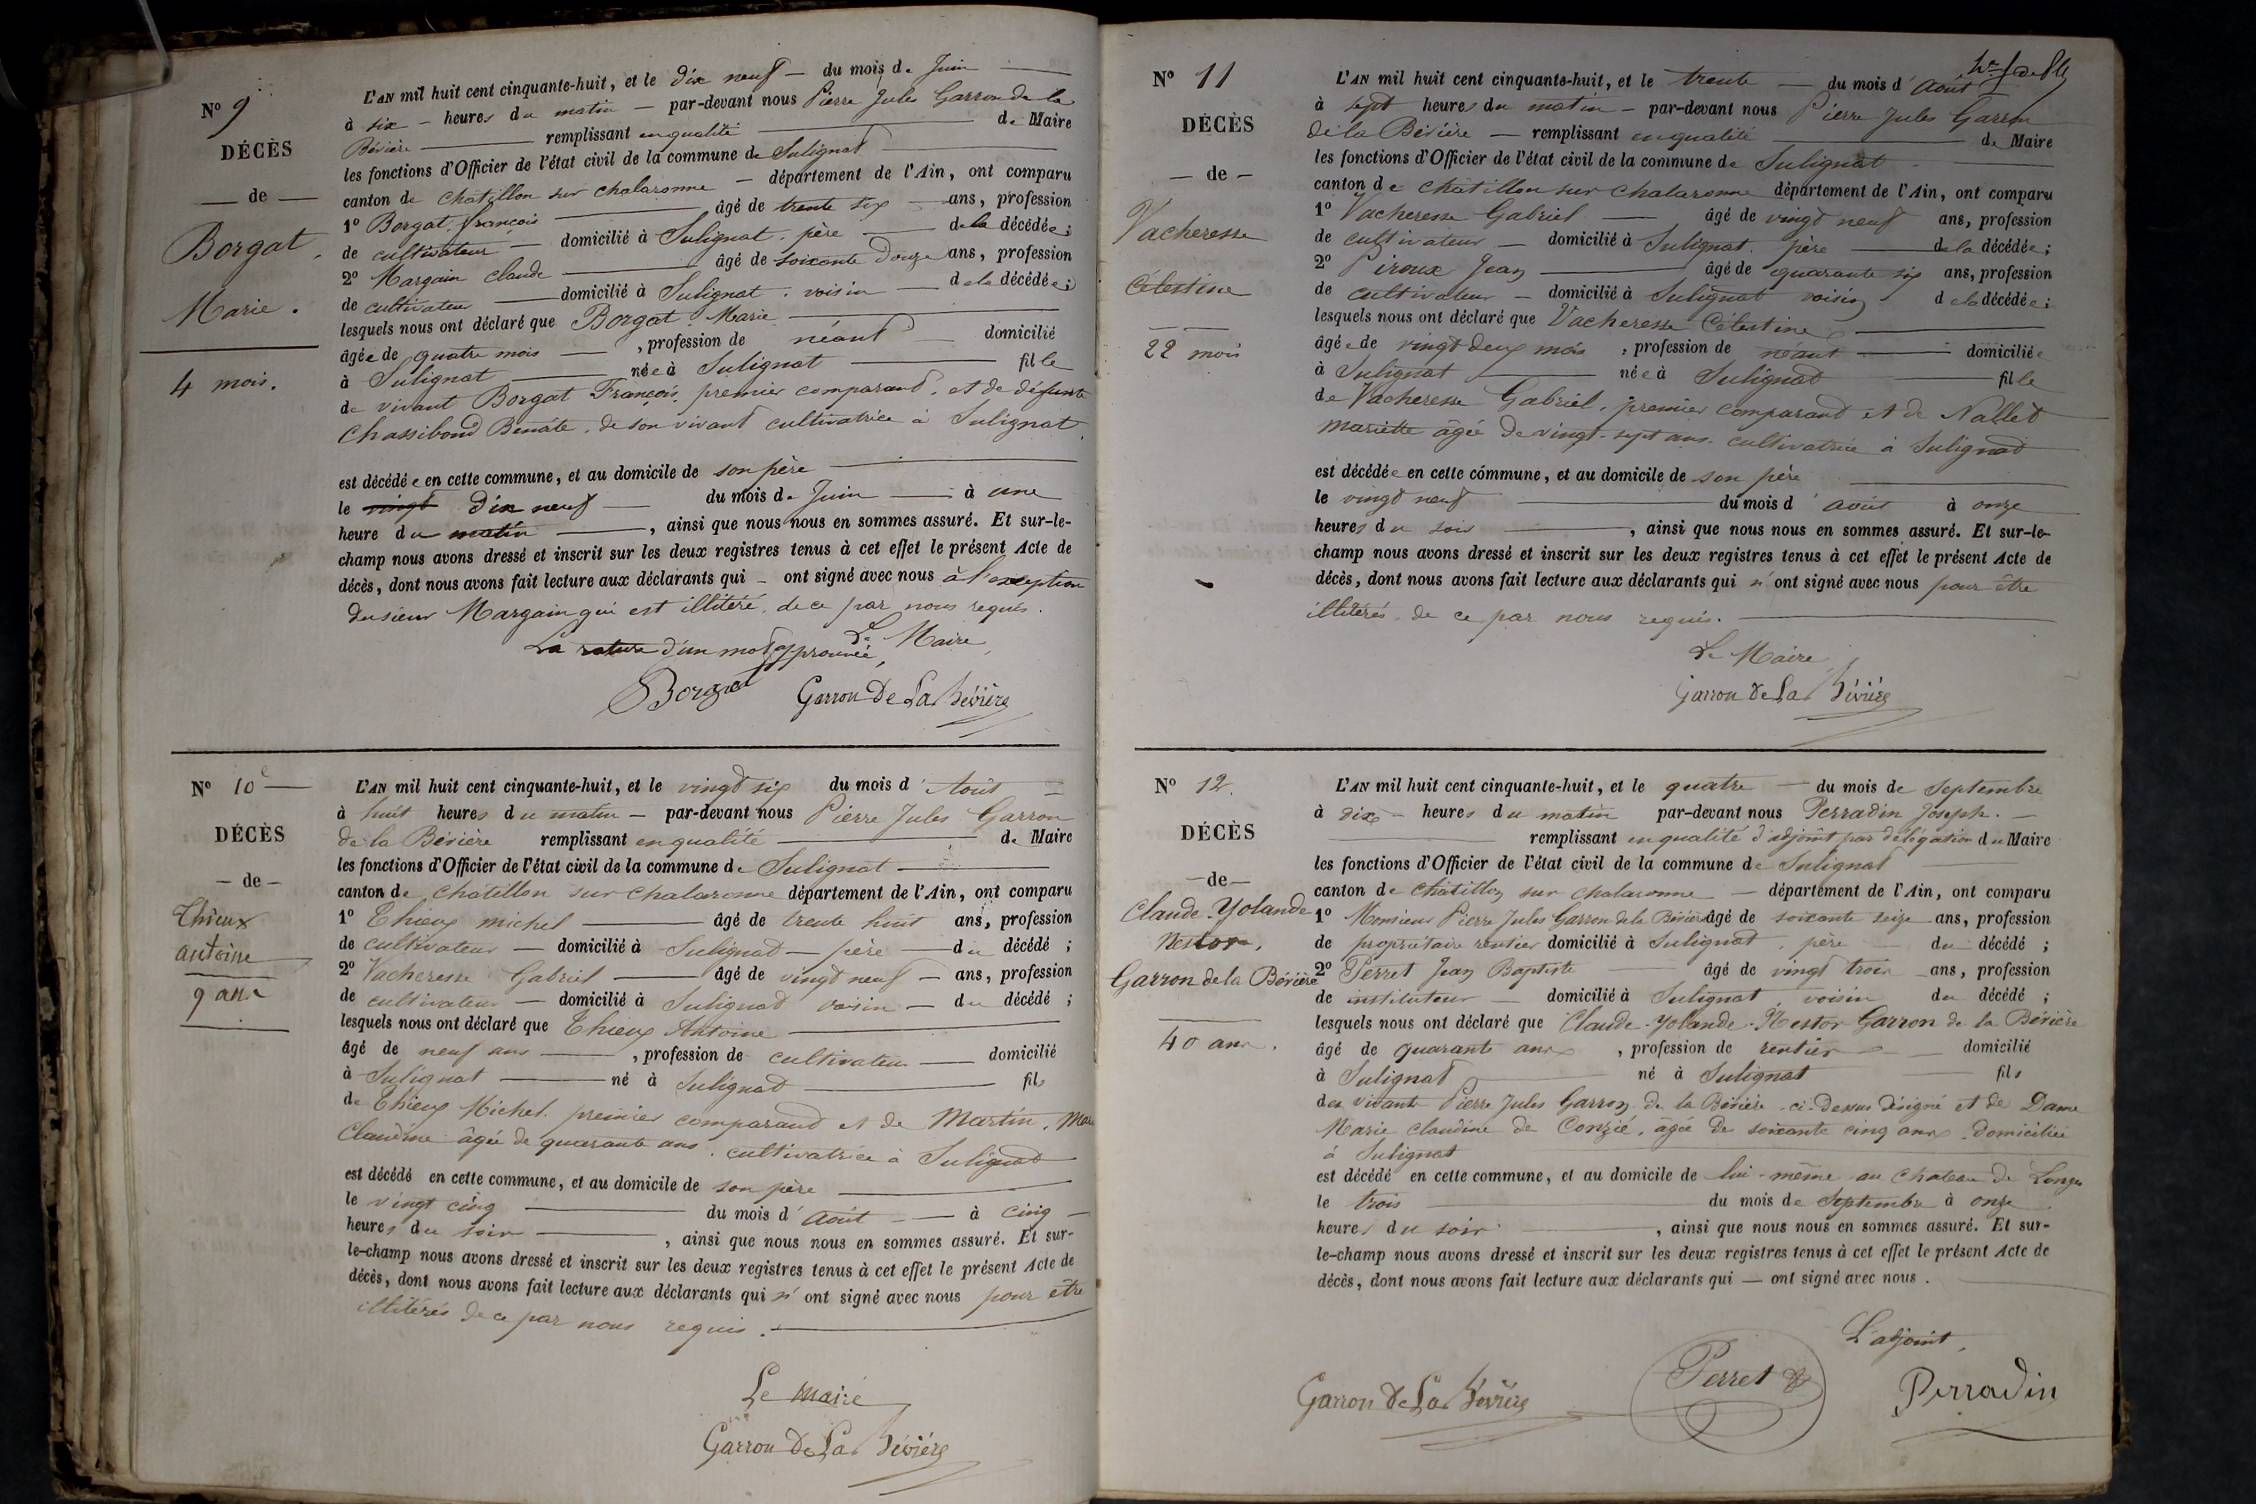 N° 9
DÉCÈS
— de —
Borgat
Marie.
4 mois.
L'AN mil huit cent cinquante-huit, et le dix neuf — du mois de Juin
à six — heures du matin — par-devant nous Pierre Jules Garron de la
Bévière remplissant en qualité de Maire
les fonctions d'Officier de l'état civil de la commune de Sulignat
canton de chatillon sur chalaronne — département de l'Ain, ont comparu
1° Borgat françois âgé de trente six ans, profession
de cultivateur — domicilié à Sulignat. père de la décédée;
2° Margain claude âgé de soixante Douze ans, profession
de cultivateur domicilié à Sulignat. voisin de la décédée;
lesquels nous ont déclaré que Borgat Marie
âgée de quatre mois , profession de néant domicilié
à Sulignat née à Sulignat fille
de vivant Borgat François, premier comparand, et de défunte
Chassibond Benoîte, de son vivant cultivatrice à Sulignat.
est décédée en cette commune, et au domicile de son père
le vingt Dix neuf du mois de Juin à une
heure du matin , ainsi que nous nous en sommes assuré. Et sur-le-
champ nous avons dressé et inscrit sur les deux registres tenus à cet effet le présent Acte de
décès, dont nous avons fait lecture aux déclarants qui — ont signé avec nous à l'exception
du sieur Margain qui est illitéré, de ce par nous requis.
Le Maire,
La rature d'un mot approuvée,
Borgat Garron De La Bévière
N° 10
DÉCÈS
— de —
Thieux
antoine
9 ans
L'AN mil huit cent cinquante-huit, et le vingt six du mois d'Août
à huit heures du matin — par-devant nous Pierre Jules Garron
de la Bévière remplissant en qualité de Maire
les fonctions d'Officier de l'état civil de la commune de Sulignat
canton de chatillon sur chalaronne département de l'Ain, ont comparu
1° Thieux michel âgé de trente huit ans, profession
de cultivateur — domicilié à Sulignat — père du décédé ;
2° Vacheresse Gabriel âgé de vingt neuf — ans, profession
de cultivateur — domicilié à Sulignat voisin — du décédé ;
lesquels nous ont déclaré que Thieux Antoine
âgé de neuf ans , profession de cultivateur domicilié
à Sulignat né à Sulignat fils
de Thieux Michel. premier comparand et de Martin,
Claudine âgée de quarante ans, cultivatrice à Sulignat
est décédé en cette commune, et au domicile de son père
le vingt cinq du mois d'août à cinq
heures du soir , ainsi que nous nous en sommes assuré. Et sur-
le-champ nous avons dressé et inscrit sur les deux registres tenus à cet effet le présent Acte de
décès, dont nous avons fait lecture aux déclarants qui n'ont signé avec nous pour être
illitérés de ce par nous requis.
Le Maire
Garron De La Bévière
N° 11
DÉCÈS
— de —
Vacheresse
Célestine
22 mois
L'AN mil huit cent cinquante-huit, et le trente — du mois d'Août
à sept heures du matin — par-devant nous Pierre Jules Garron
de la Bévière — remplissant en qualité de Maire
les fonctions d'Officier de l'état civil de la commune de Sulignat
canton de châtillon sur chalaronne département de l'Ain, ont comparu
1° Vacheresse Gabriel âgé de vingt neuf ans, profession
de cultivateur — domicilié à Sulignat. père de la décédée;
2° Piroux Jean âgé de quarante six ans, profession
de cultivateur — domicilié à Sulignat voisin de la décédée;
lesquels nous ont déclaré que Vacheresse Célestine
âgée de vingt deux mois , profession de néant domiciliée
à Sulignat née à Sulignat fille
de Vacheresse Gabriel, premier comparand et de Nallet
mariette âgée de vingt-sept ans. cultivatrice à Sulignat
est décédée en cette commune, et au domicile de son père
le vingt neuf du mois d'août à onze
heures du soir , ainsi que nous nous en sommes assuré. Et sur-le-
champ nous avons dressé et inscrit sur les deux registres tenus à cet effet le présent Acte de
décès, dont nous avons fait lecture aux déclarants qui n'ont signé avec nous pour être
illitérés, de ce par nous requis.
Le Maire
Garron De La Bévière
N° 12.
DÉCÈS
— de —
Claude-Yolande
Nestor,
Garron de la Bévière
40 ans.
L'AN mil huit cent cinquante-huit, et le quatre — du mois de Septembre
à dix — heures du matin par-devant nous Perradin Joseph. —
remplissant en qualité d'adjoint par délégation du Maire
les fonctions d'Officier de l'état civil de la commune de Sulignat
canton de châtillon sur chalaronne — département de l'Ain, ont comparu
1° Monsieur Pierre Jules Garron de la Bévière âgé de soixante seize ans, profession
de propriétaire rentier domicilié à Sulignat, père du décédé ;
2° Perret Jean Baptiste âgé de vingt trois ans, profession
de instituteur — domicilié à Sulignat, voisin du décédé ;
lesquels nous ont déclaré que Claude-Yolande-Nestor Garron de la Bévière
âgé de quarante ans , profession de rentier domicilié
à Sulignat né à Sulignat fils
des vivants Pierre Jules Garron de la Bévière ci-dessus désigné et de Dame
Marie Claudine de Conzié, agée de soixante cinq ans domiciliée
à Sulignat
est décédé en cette commune, et au domicile de lui-même au chateau de Longes
le trois du mois de Septembre à onze
heures du soir , ainsi que nous nous en sommes assuré. Et sur-
le-champ nous avons dressé et inscrit sur les deux registres tenus à cet effet le présent Acte de
décès, dont nous avons fait lecture aux déclarants qui — ont signé avec nous.
L'adjoint,
Garron De La Bévière Perret Perradin